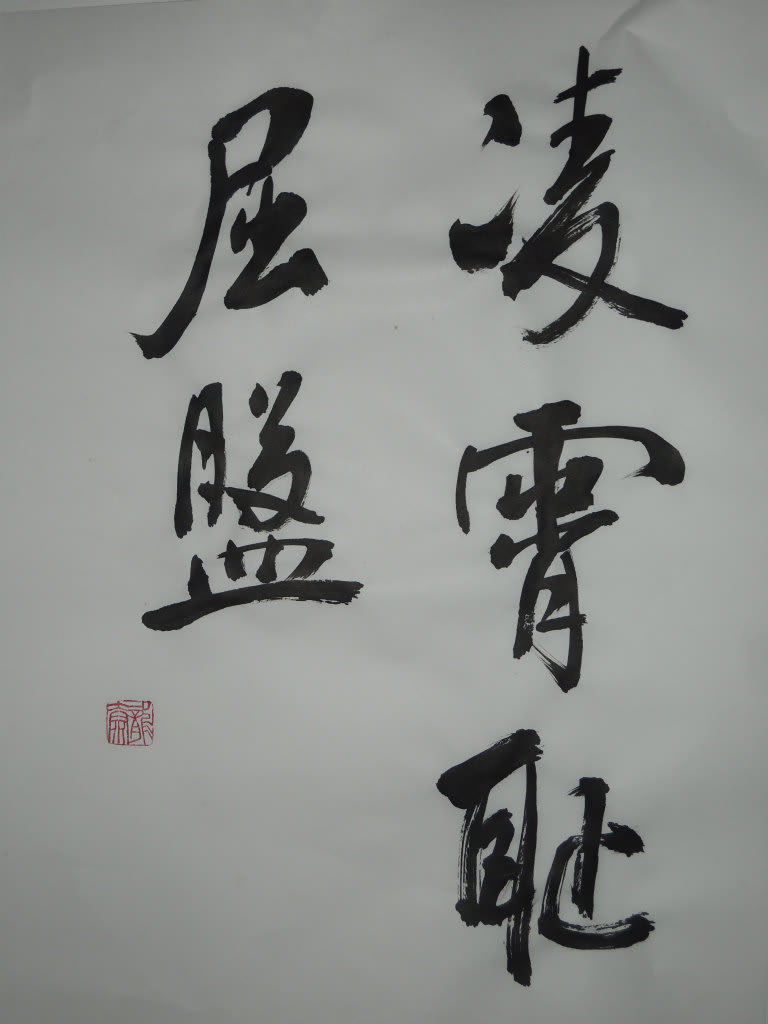 凌霄耻
屈盤